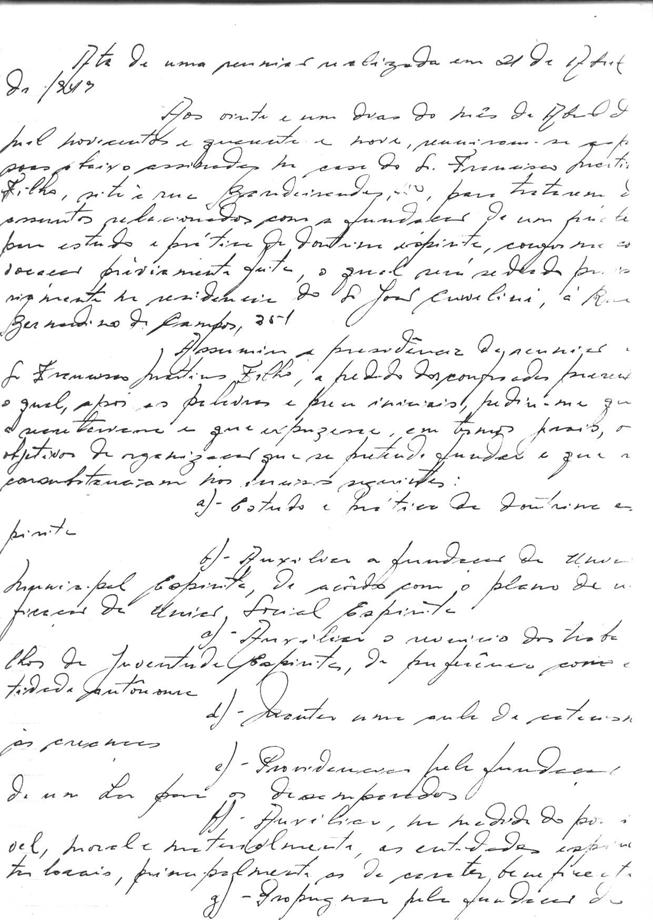 Ata de uma reunião realizada em 21 de Abril
de 1949
Aos vinte e um dias do mês de Abril d
mil novecentos e quarenta e nove, reuniram-se as p
soas abaixo assinadas na casa do Sr. Francisco Martins
Filho, sito à rua Bandeirantes, para tratarem d
assuntos relacionados com a fundação de um
para estudo e prática da doutrina espírita, conforme co
vocação préviamente feita, o qual será sediado
na residencia do Sr José, à Rua
Bernardino de Campos, 351
Assumiu a presidência da reunião o
Sr Francisco Martins Filho, a pedido dos confrades presen
o qual, após as palavras e prece iniciais, pediu-me que
a secretariasse e que expuzesse, em termos gerais, o
objetivos da organização que se pretende fundar e que
consubstanciam nos incisos seguintes:
a)- Estudo e Prática da doutrina es
pirita
b)- Auxiliar a fundação da União
Municipal Espírita, de acôrdo com o plano de u
ficação da União Social Espírita
c)- Auxiliar o reinicio dos traba
lhos da Juventude Espírita, de preferência como e
tidade autônoma
d)- Manter uma aula de catecism
às creanças
e)- Providenciar pela fundação
de um Lar para os desamparados
f)- Auxiliar, na medida do possi
vel, moral e materialmente, as entidades espiri
tas locais, principalmente as de carater beneficente
g)- Propugnar pela fundação de